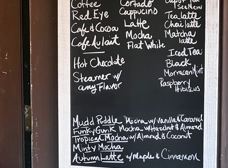 Coffee
Red Eye
Cafe Cocoa
Cafe Au lait
Hot Chocolate
Steamer w/
any Flavor
Cortado
Cappucino
Latte
Mocha
Flat White
See New
Tea latte
Chai latte
Matcha
latte
Iced Tea
Black
Moroccan Mint
Raspberry
Hibiscus
Mudd Puddle Mocha w/ Vanilla & Coconut
Funky Gunk Mocha w/ Hazelnut & Almond
Tropical Mocha w/ Almond & Coconut
Minty Mocha
Autumn Latte w/ Maple & Cinnamon